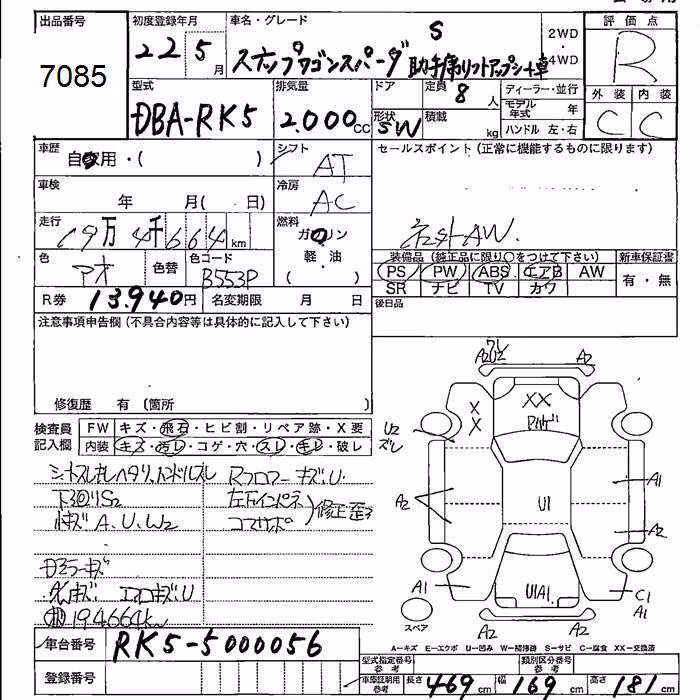 出品番号
7085
初度登録年月
22 5月
車名・グレード
S
ステップワゴンスパーダ 助手席リフトアップシート車
2WD
4WD
評価点
R
外装 内装
C C
型式
DBA-RK5
排気量
2.000cc
ドア
形状
SW
定員
8人
積載
kg
ディーラー・並行
モデル年式 年
ハンドル 左・右
車歴
自家用・( )
シフト
AT
セールスポイント(正常に機能するものに限ります)
社外AW.
車検
年 月( 日)
冷房
AC
走行
19万4千664km
燃料
ガソリン
軽・油
( )
色
色替
色コード
B553P
R券 13.940円
名変期限 月 日
装備品(純正品に限り○をつけて下さい)
PS PW ABS エアB AW
SR ナビ TV カワ
新車保証書
有・無
後日品
注意事項申告欄(不具合内容等は具体的に記入して下さい)
修復歴 有(箇所 )
検査員記入欄
FW キズ・飛石・ヒビ割・リペア跡・X要
内装 キズ・汚レ・コゲ・穴・スレ・モレ・破レ
シートスレ汚レヘタリ、ハンドルスレ
下廻りS2
内キズ A、U、W2
Rフロアーキズ、U
左下インパネ
コアサポ
修正歪
ドアミラーキズ
エアロキズ、U
194664km
A2 A2
XX
X
X
U2
ズレ
A2
U1
A1
A2
A1
U1A1
C1
A1
A2 A2
スペア
A-キズ E-エクボ U-凹み W-補修跡 S-サビ C-腐食 XX-交換済
車台番号 RK5-5000056
登録番号
型式指定番号 参考
類別区分番号 参考
車庫証明用 参考
長さ 469cm 幅 169cm 高さ 181cm